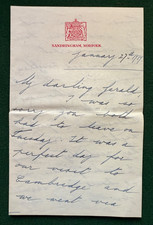 SANDRINGHAM, NORFOLK
January 27th
My darling
I was so
sorry you both
had to leave on
Tuesday. It was a
perfect day for
our
Cambridge and
we went via